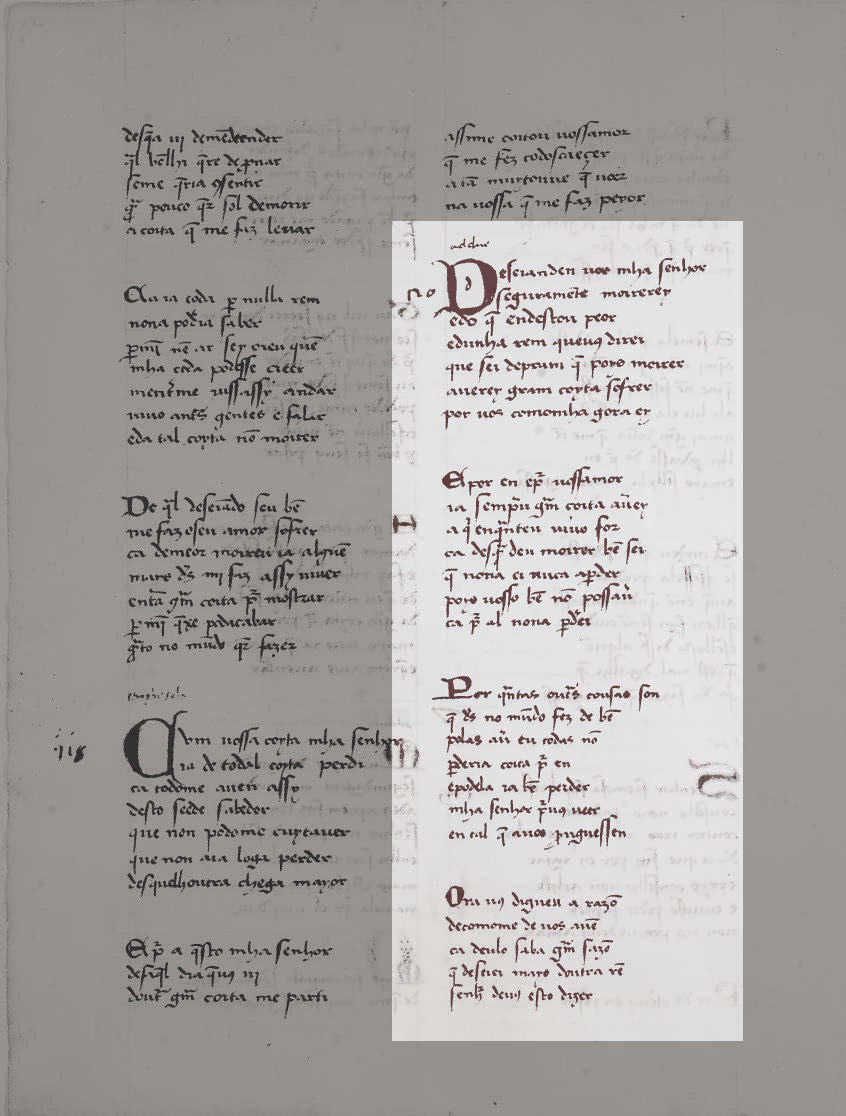 desq̄a vj demēdeender
q̄l bēlhi q̄re de parar
seme q̄ria ꝯsentir
q̄ pouco q̄r sol demorir
a coita q̄ me faz levar
Ca ia cada per nulla rem
nona podia saber
mha coda podesse creer
vivo antes gentes e falar
eda tal coyta nō moirer
De q̄l deseiādo seu bē
me faz oseu amor sofrer
ca demeor moireu ia alguē
mais ds̄ mi faz assy viver
entā gm̄ coita p̄ mostrar
no mūdo q̄r fazer
118
Com vossa coyta mha senhor
ia de todal coyta perdi
ca todome aven assy
desto seede sabedor
que non podome cuytaver
que non aia loga perder
desquelhoutra chega mayor
E p̄ a q̄sto mha senhor
desaq̄l dia q̄vus vi
doutr̄ gm̄ coita me parti
assime contou vossamor
q̄ me fez todoscaeçer
a tā muytouve q̄ veer
na vossa q̄ me faz peyor
Deseianden vos mha senhor
seguramēte moirerey
edo q̄ endestou peor
edunha rem queuus direi
que sei depram q̄ poys moirer
averey gram coyta sofrer
por vos comomha gora ey
E por en ep̄ vossamor
ia sempreu gm̄ coita aūer
a q̄ enq̄nteu vivo for
ca desp̄ deu moirer bē sei
q̄ nona ei nūca aperder
poys vosso bē nō possaū
ca p̄ al nona perdei
Per q̄ntas outs̄ cousas son
q̄ ds̄ no mūdo fez de bē
polas aū eu todas nō
perderia coita p̄ en
epodela ia bē perder
mha senhor p̄vus veer
en tal q̄ avos p̄uguessen
Ora vus digueu a razō
decomome de vos avē
ca deulo saba gm̄ sazō
q̄ deseiei mays doutra rē
senhr̄ devus esto dizer